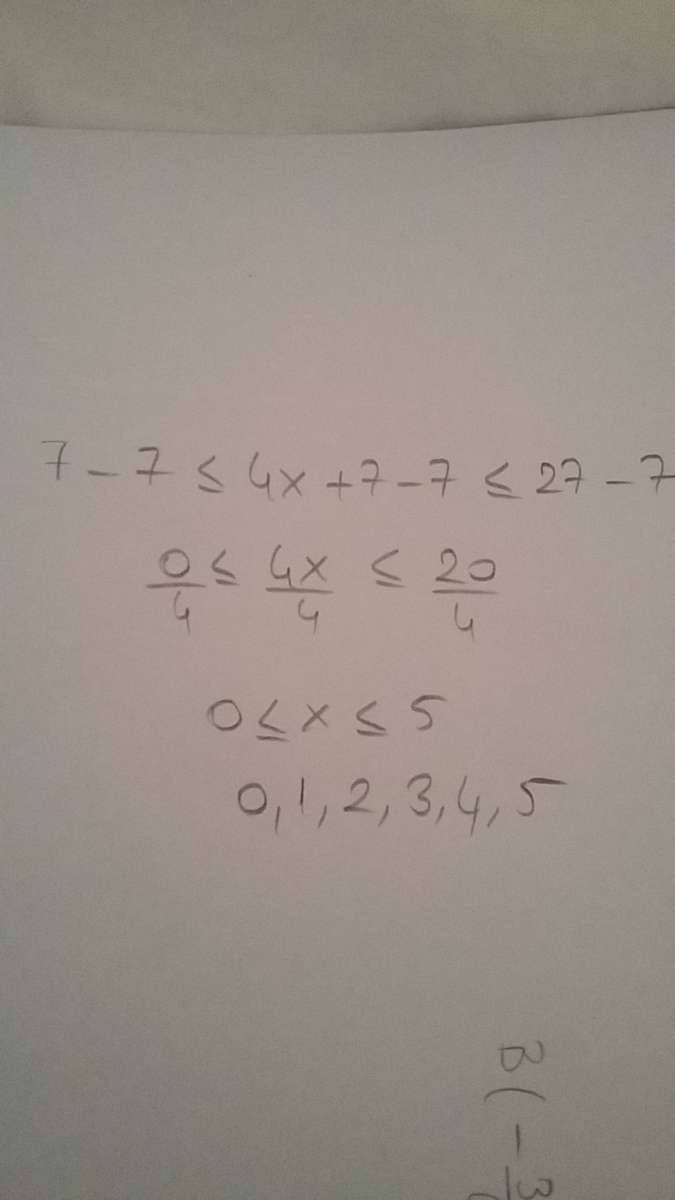 7 - 7 ≤ 4x + 7 - 7 ≤ 27 - 7
0/4 ≤ 4x/4 ≤ 20/4
0 ≤ x ≤ 5
0, 1, 2, 3, 4, 5
B( - 3